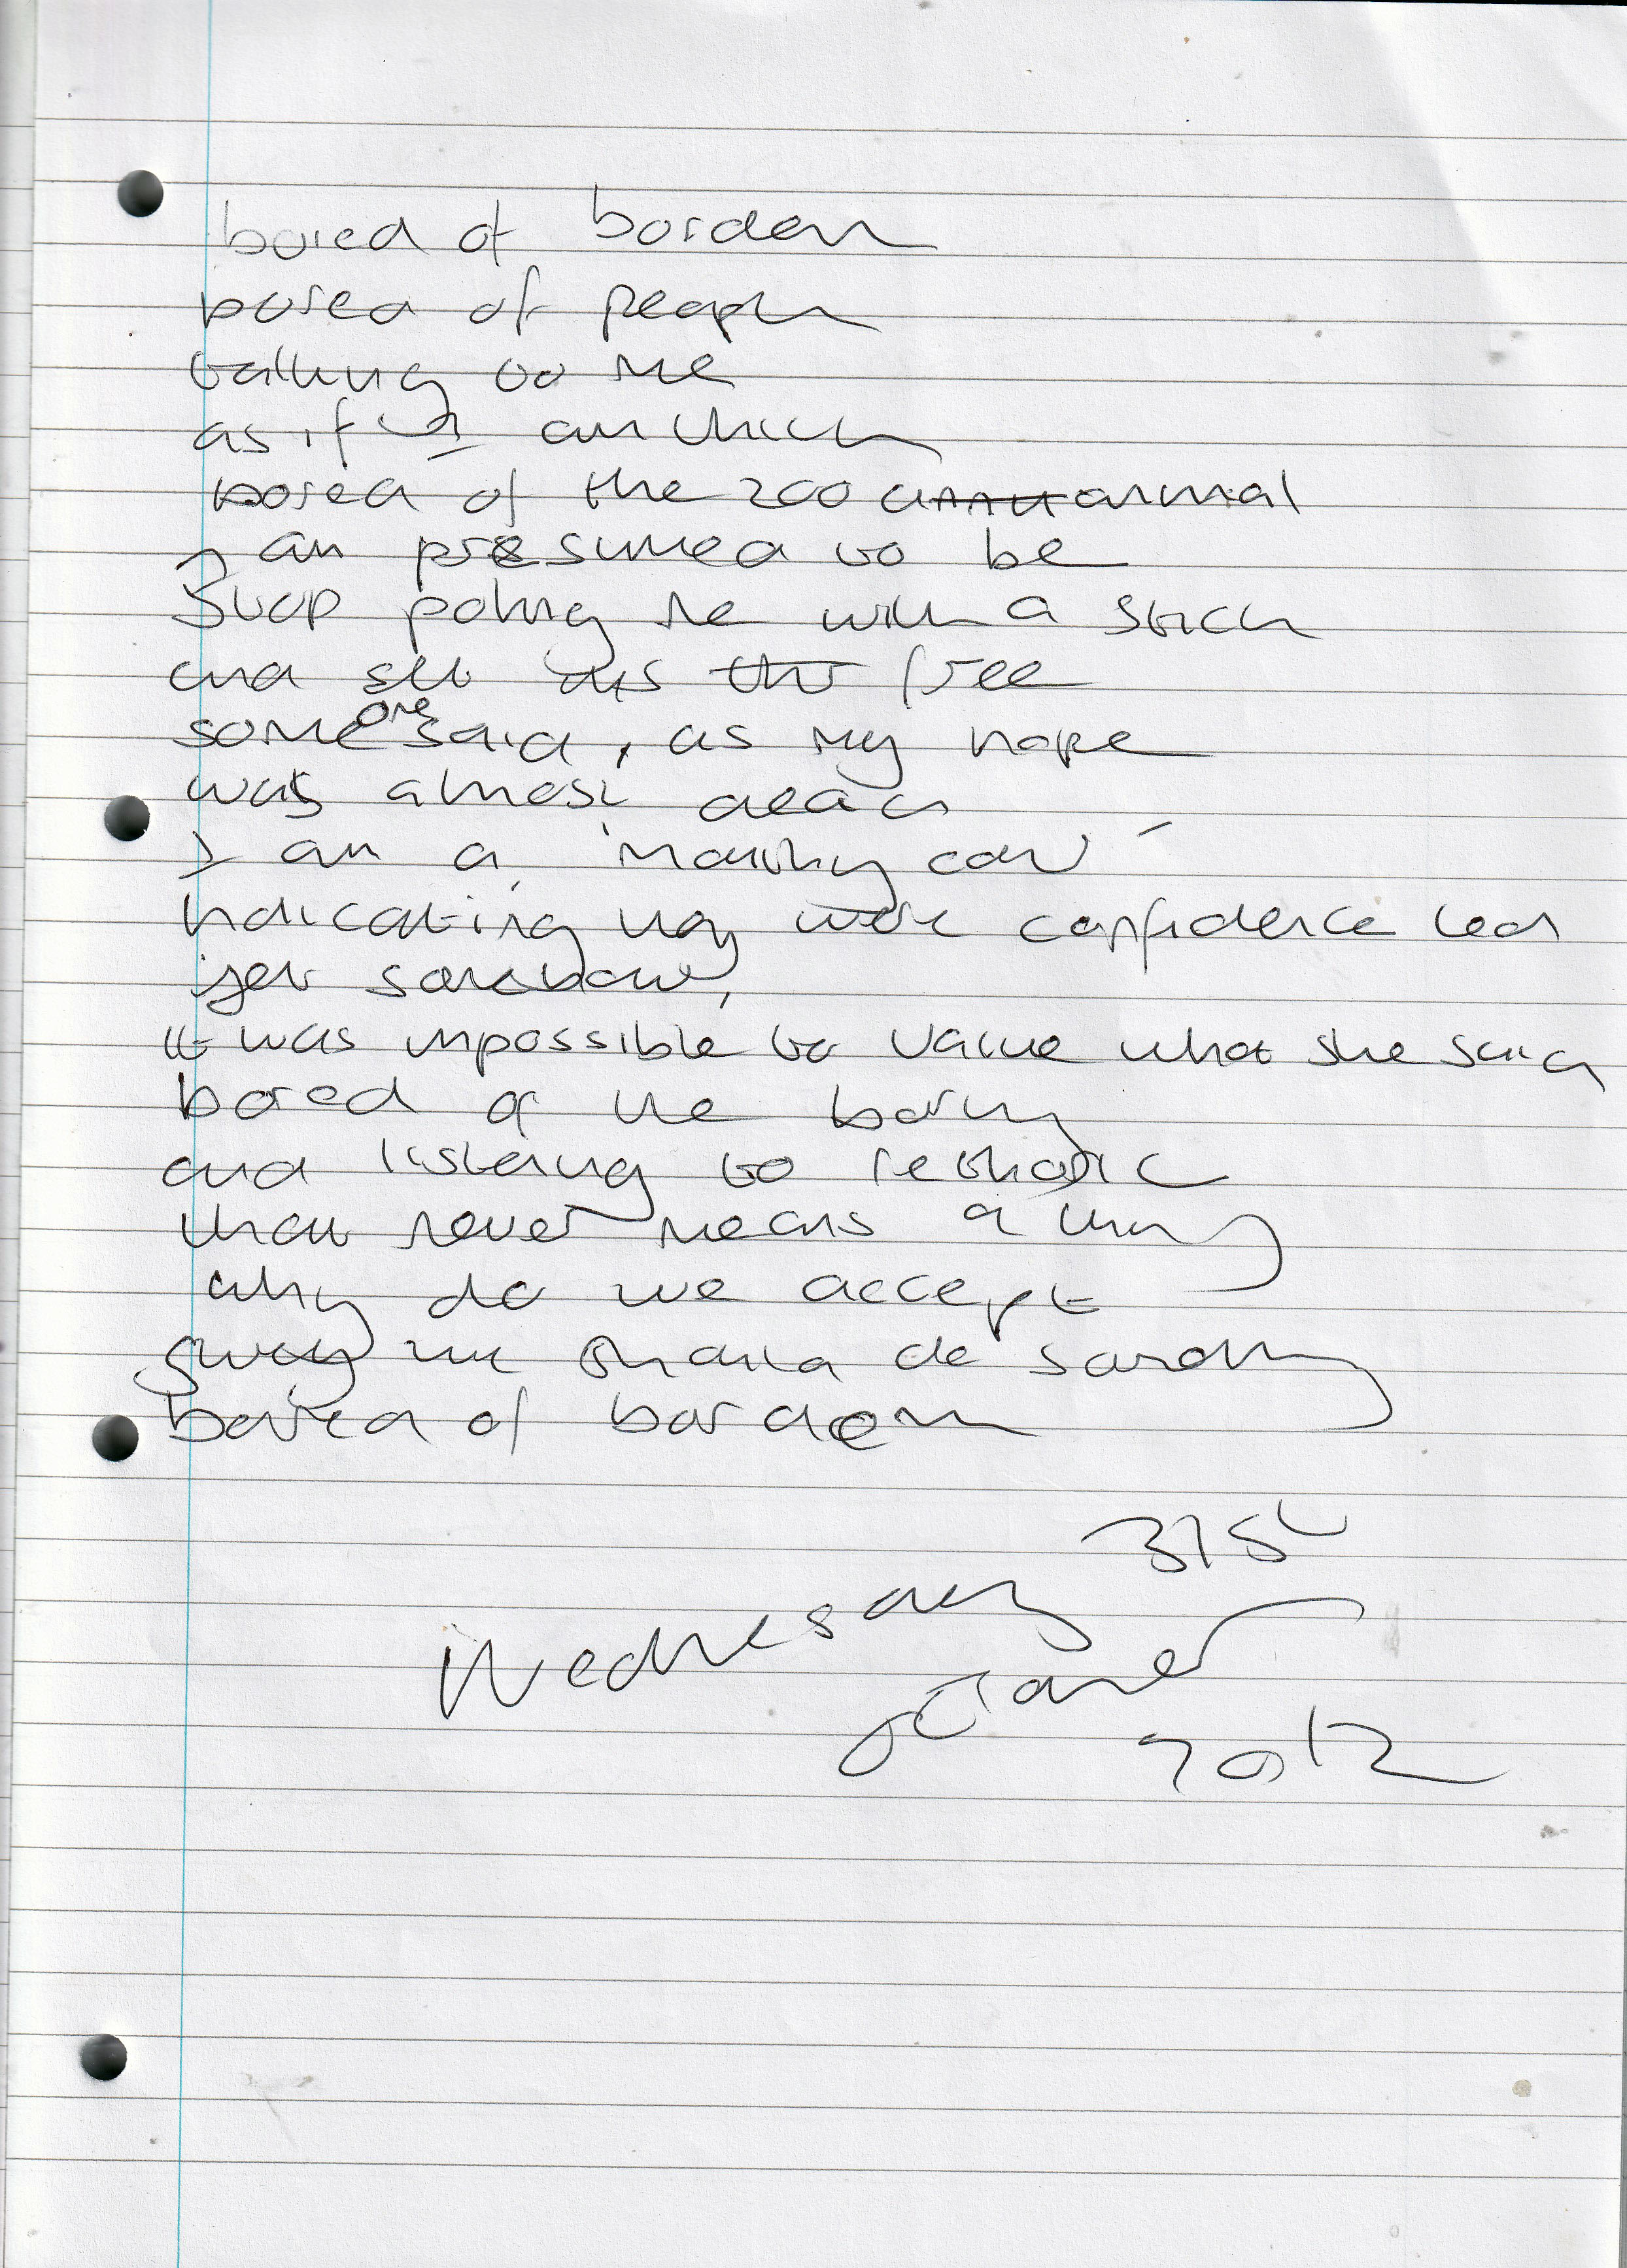 bored of bordem
bored of people
talking to me
as if I am thick
bored of the zoo animal
I am presumed to be
Stop poking me with a stick
and set us free
someone said, as my hope
was almost dead
I am a 'marking cow'
Indicating my work confidence led
yet somehow,
it was impossible to value what she said
bored of the boring
and listening to rethoric
that never means a thing
why do we accept
giving the de
bored of bordem
Wednesday 31st
October
2012